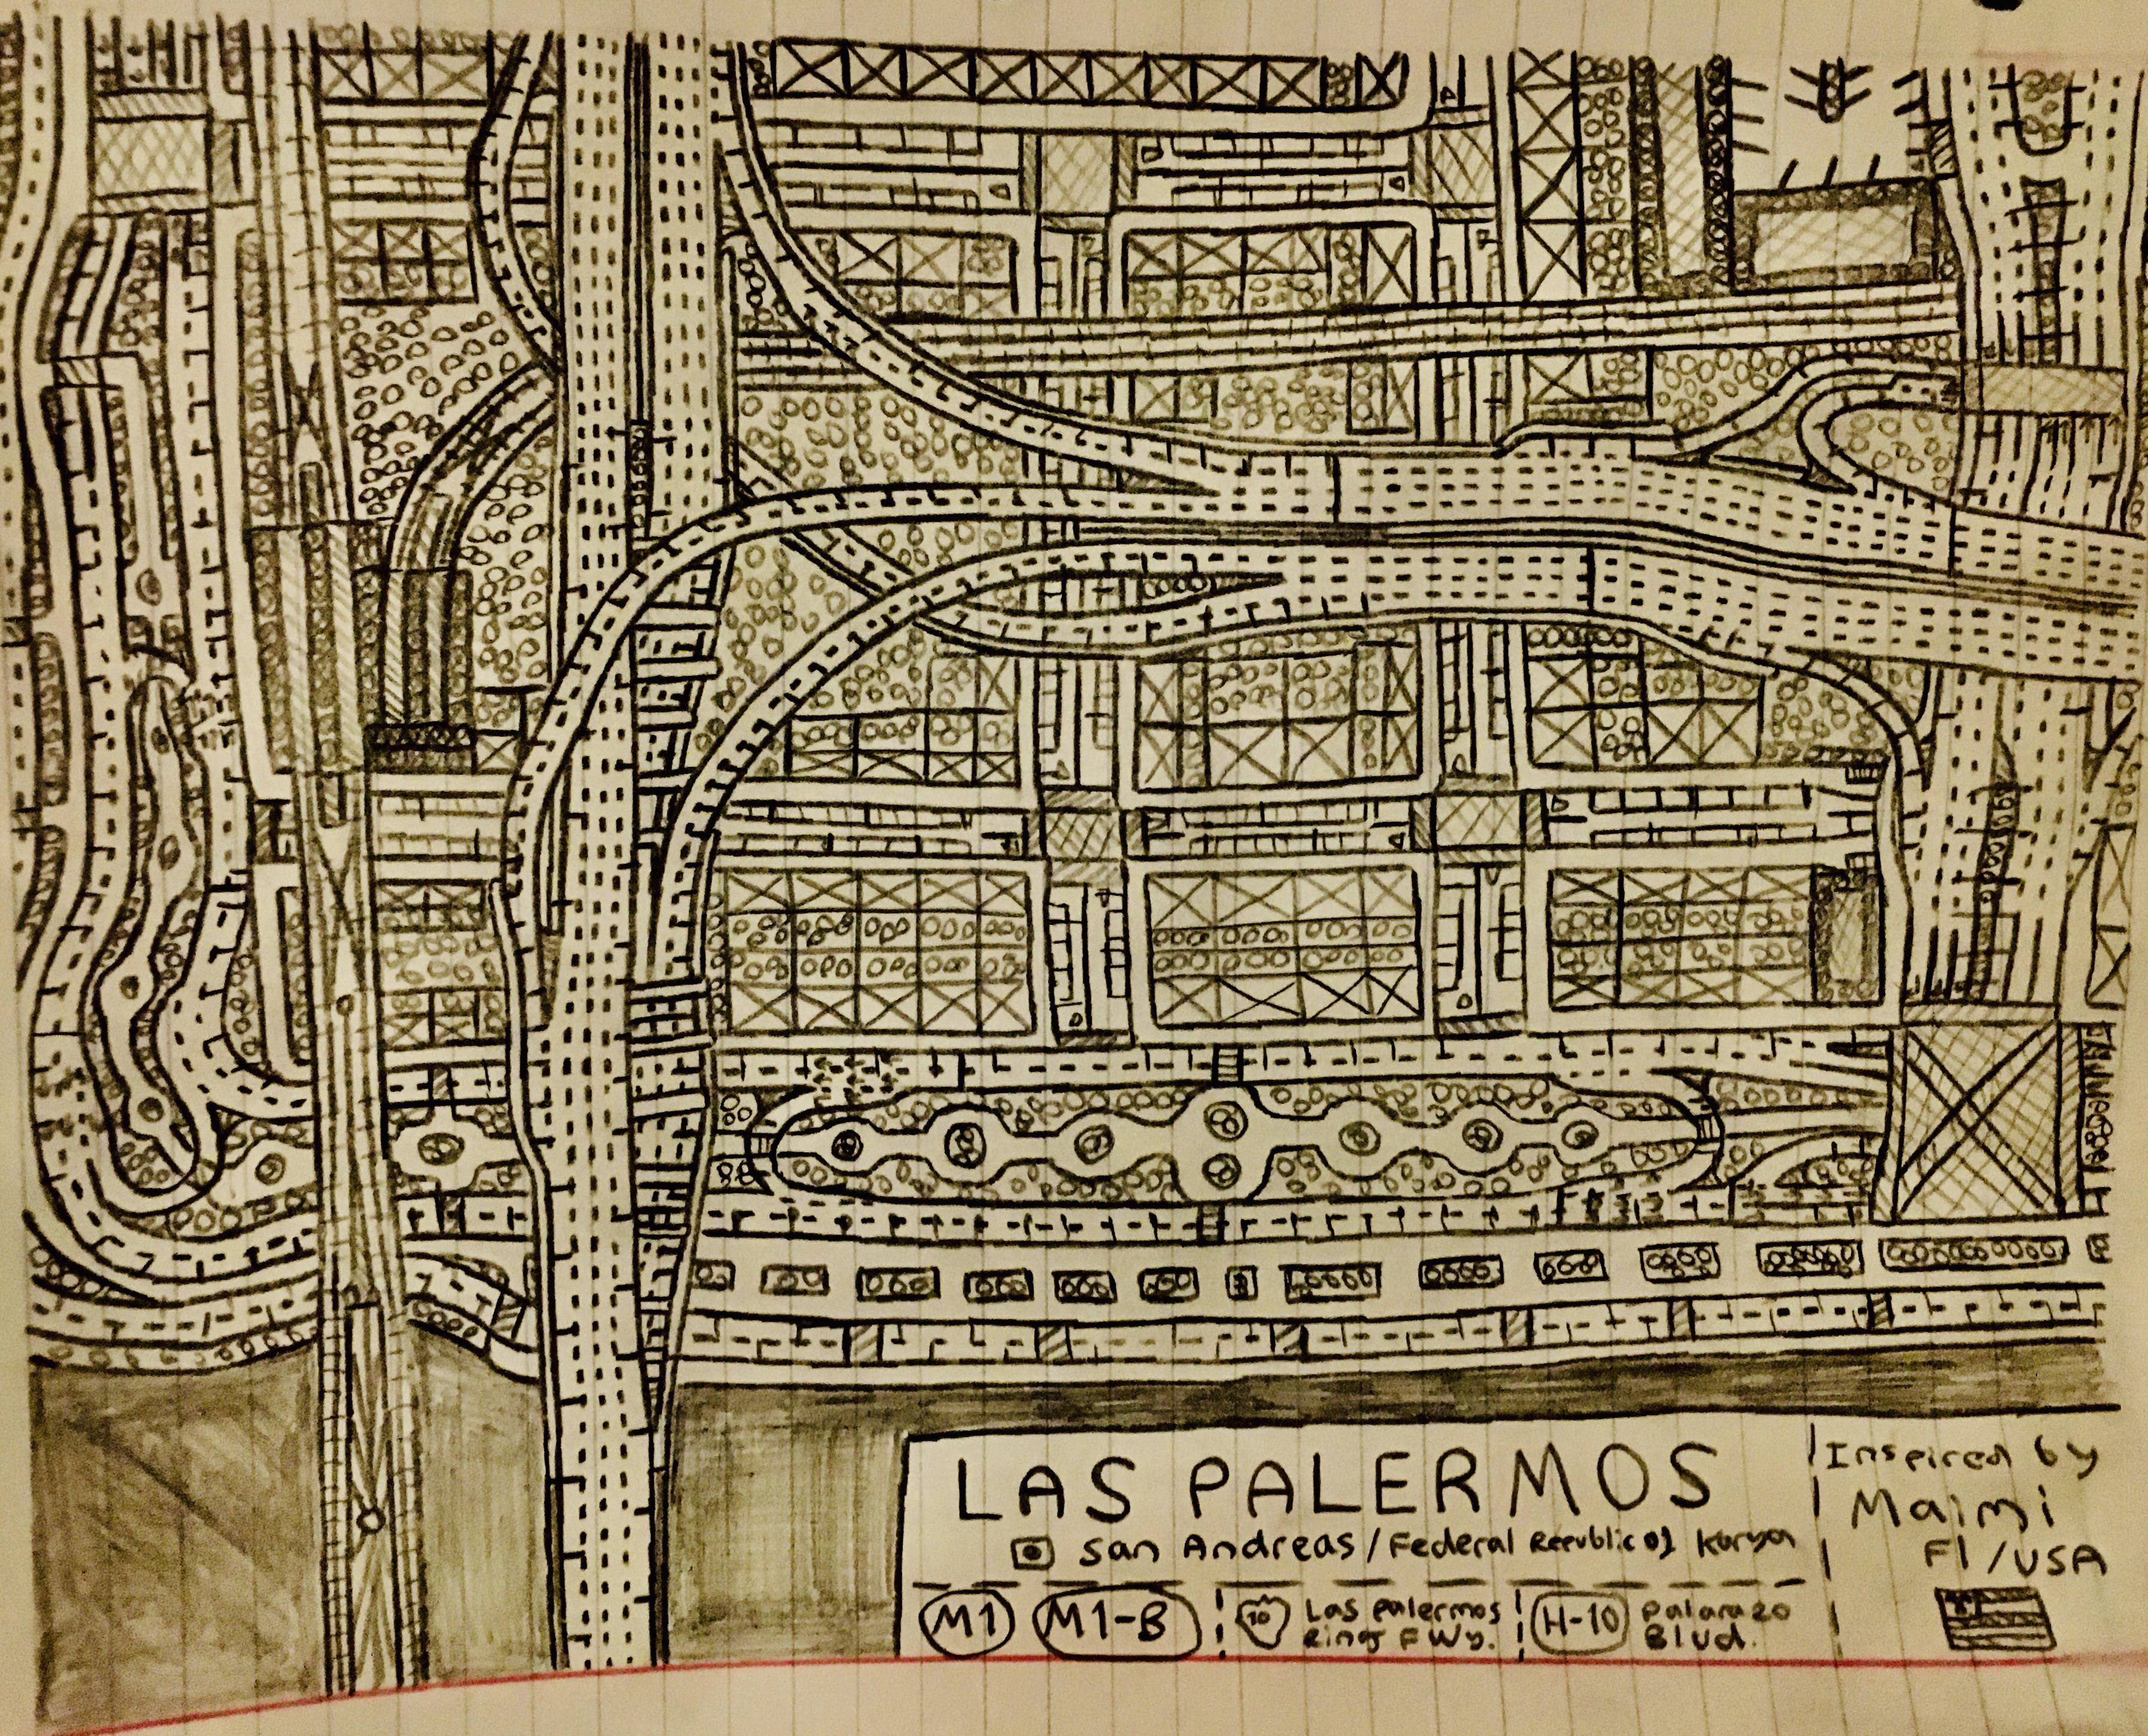 LAS PALERMOS
San Andreas / Federal Republic of Korya
M1 M1-B 10 Las Palermos Ring FWy. H-10 Palarazo Blvd.
Inspired by
Maimi
Fl / USA